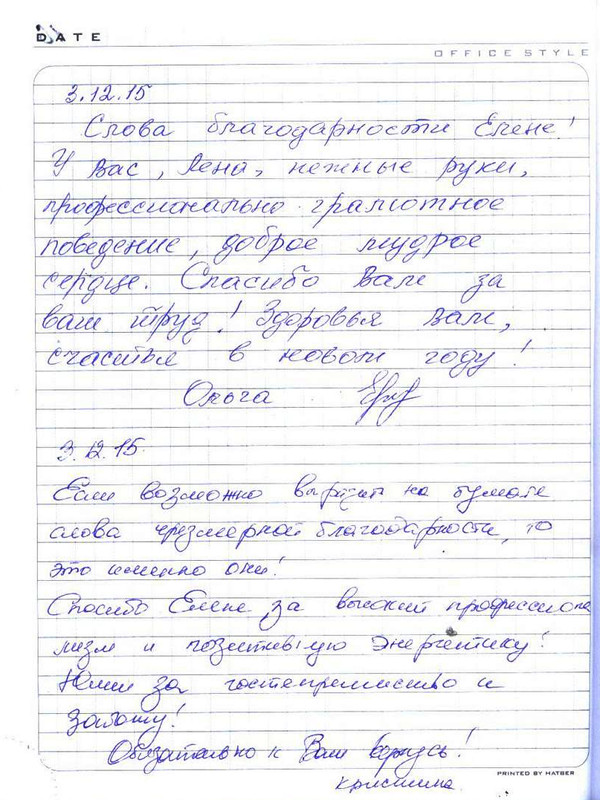 DATE
OFFICE STYLE
3.12.15
Слова благодарности Елене!
У вас, Лена, нежные руки,
профессионально-грамотное
поведение, доброе мудрое
сердце. Спасибо Вам за
ваш труд! Здоровья Вам,
счастья в новом году!
Ольга
3.12.15.
Если возможно выразить на бумаге
слова чрезмерной благодарности, то
это именно они!
Спасибо Елене за высокий профессиона
лизм и позитивную энергетику!
Юлии за гостеприимство и
заботу!
Обязательно к Вам вернусь!
Кристина
PRINTED BY HATBER